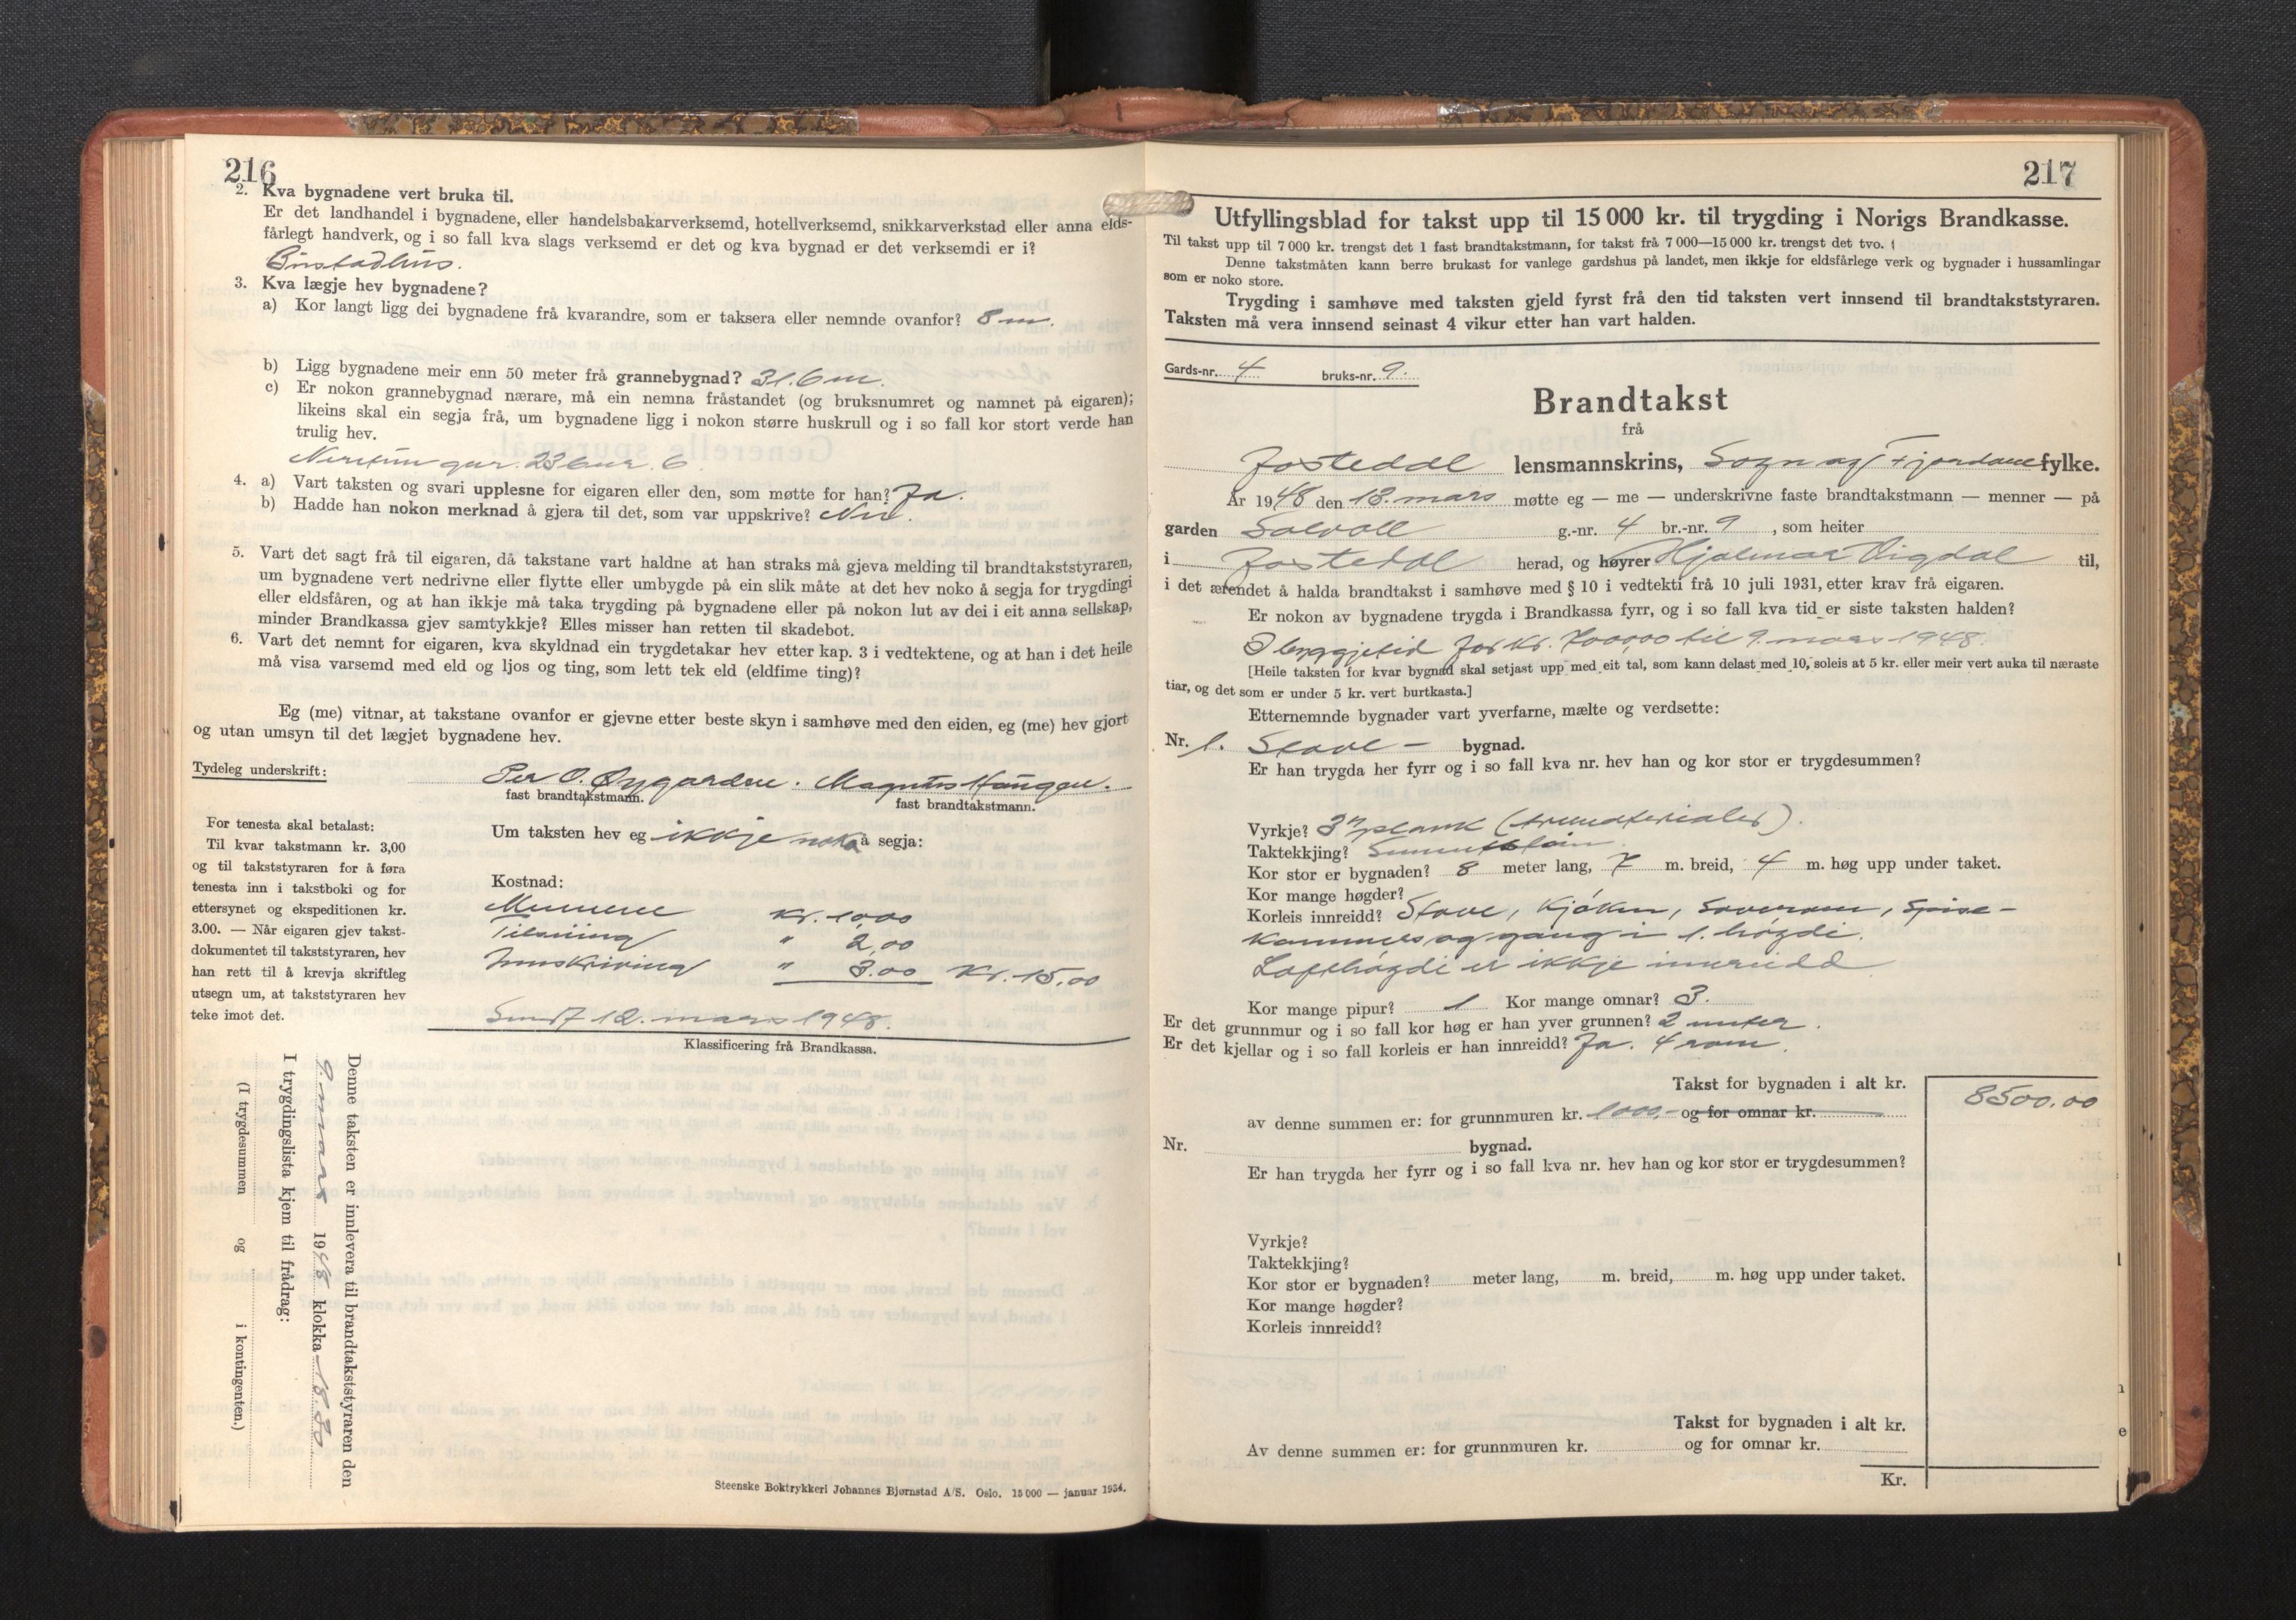 216
2. Kva bygnadene vert bruka til.
Er det landhandel i bygnadene, eller handelsbakarverksemd, hotellverksemd, snikkarverkstad eller anna elds-
fårlegt handverk, og i so fall kva slags verksemd er det og kva bygnad er det verksemdi er i?
Bustadhus.
3. Kva lægje hev bygnadene?
a) Kor langt ligg dei bygnadene frå kvarandre, som er taksera eller nemnde ovanfor? 8 m.
b) Ligg bygnadene meir enn 50 meter frå grannebygnad? 31.6 m.
c) Er nokon grannebygnad nærare, må ein nemna fråstandet (og bruksnumret og namnet på eigaren);
likeins skal ein segja frå, um bygnadene ligg i nokon større huskrull og i so fall kor stort verde han
trulig hev.
4. a) Vart taksten og svari upplesne for eigaren eller den, som møtte for han? Ja.
b) Hadde han nokon merknad å gjera til det, som var uppskrive? Nei.
5. Vart det sagt frå til eigaren, då takstane vart haldne at han straks må gjeva melding til brandtakststyraren,
um bygnadene vert nedrivne eller flytte eller umbygde på ein slik måte at det hev noko å segja for trygdingi
eller eldsfåren, og at han ikkje må taka trygding på bygnadene eller på nokon lut av dei i eit anna sellskap,
minder Brandkassa gjev samtykkje? Elles misser han retten til skadebot.
6. Vart det nemnt for eigaren, kva skyldnad ein trygdetakar hev etter kap. 3 i vedtektene, og at han i det heile
må visa varsemd med eld og ljos og ting, som lett tek eld (eldfime ting)?
Eg (me) vitnar, at takstane ovanfor er gjevne etter beste skyn i samhøve med den eiden, eg (me) hev gjort
og utan umsyn til det lægjet bygnadene hev.
Tydeleg underskrift: Per O. Øygarden. Magnus Haugen.
fast brandtakstmann. fast brandtakstmann.
For tenesta skal betalast:
Til kvar takstmann kr. 3,00
og til takststyraren for å føra
tenesta inn i takstboki og for
ettersynet og ekspeditionen kr.
3.00. — Når eigaren gjev takst-
dokumentet til takststyraren, hev
han rett til å krevja skriftleg
utsegn um, at takststyraren hev
teke imot det.
Um taksten hev eg ikkje noko å segja:
Kostnad:
Mennene Kr. 10,00
Tilsning " 2,00
Innskriving " 3.00 Kr. 15,00
Sendt 12. mars 1948.
Klassificering frå Brandkassa.
Denne taksten er innlevera til brandtakststyraren den
9. mars 1948 klokka 18.30
I trygdingslista kjem til frådrag:
(I trygdesummen og i kontingenten.)
Steenske Boktrykkeri Johannes Bjørnstad A/S. Oslo. 15 000 — januar 1934.
217
Utfyllingsblad for takst upp til 15 000 kr. til trygding i Norigs Brandkasse.
Til takst upp til 7 000 kr. trengst det 1 fast brandtakstmann, for takst frå 7 000—15 000 kr. trengst det tvo.
Denne takstmåten kann berre brukast for vanlege gardshus på landet, men ikkje for eldsfårlege verk og bygnader i hussamlingar
som er noko store.
Trygding i samhøve med taksten gjeld fyrst frå den tid taksten vert innsend til brandtakststyraren.
Taksten må vera innsend seinast 4 vikur etter han vart halden.
Gards-nr. 4 bruks-nr. 9.
Brandtakst
frå
Jostedal lensmannskrins, Sogn og Fjordane fylke.
År 1948 den 13. mars møtte eg — me — underskrivne faste brandtakstmann — menner — på
garden Solvoll g.-nr. 4 br.-nr. 9, som heiter
i Jostedal herad, og høyrer Hjalmar Vigdal til,
i det ærendet å halda brandtakst i samhøve med § 10 i vedtekti frå 10 juli 1931, etter krav frå eigaren.
Er nokon av bygnadene trygda i Brandkassa fyrr, og i so fall kva tid er siste taksten halden?
I byggjetid for kr. 7000,00 til 9. mars 1948.
[Heile taksten for kvar bygnad skal setjast upp med eit tal, som kann delast med 10, soleis at 5 kr. eller meir vert auka til næraste
tiar, og det som er under 5 kr. vert burtkasta.]
Etternemnde bygnader vart yverfarne, mælte og verdsette:
Nr. 1. Stove- bygnad.
Er han trygda her fyrr og i so fall kva nr. hev han og kor stor er trygdesummen?
Vyrkje? 3" plank
Taktekkjing?
Kor stor er bygnaden? 8 meter lang, 7 m. breid, 4 m. høg upp under taket.
Kor mange høgder?
Korleis innreidd? Stove, kjøken, soverom, spise-
kammers og gang i 1. høgdi.
Lofthøgdi er ikkje innreidd
Kor mange pipur? 1 Kor mange omnar? 3.
Er det grunnmur og i so fall kor høg er han yver grunnen? 2 meter.
Er det kjellar og i so fall korleis er han innreidd? Ja. 4 rom.
Takst for bygnaden i alt kr. 8500.00
av denne summen er: for grunnmuren kr. 1000,- og for omnar kr.
Nr. bygnad.
Er han trygda her fyrr og i so fall kva nr. hev han og kor stor er trygdesummen?
Vyrkje?
Taktekkjing?
Kor stor er bygnaden? meter lang, m. breid, m. høg upp under taket.
Kor mange høgder?
Korleis innreidd?
Takst for bygnaden i alt kr.
Av denne summen er: for grunnmuren kr. og for omnar kr.
Kr.